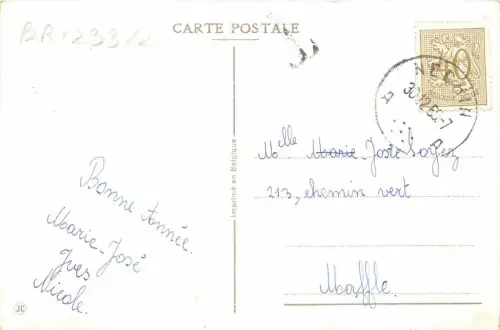 BR-233/2
CARTE POSTALE
Bonne Année.
Marie-José
Yves
Nicole.
Imprimé en Belgique
Melle Marie-Josée
213, chemin vert
Maffle.
40
30.12.60-7
A A
JC